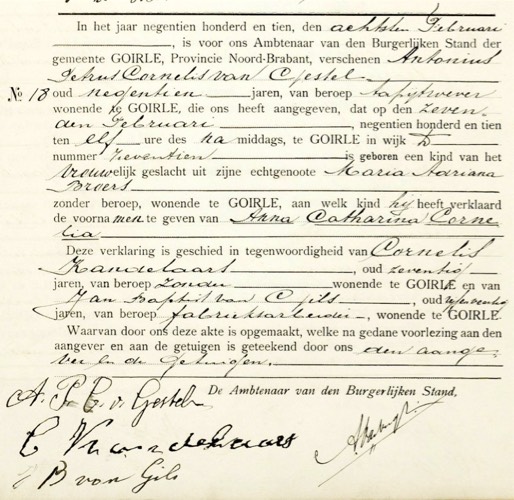 In het jaar negentien honderd en tien, den achtsten Februari
, is voor ons Ambtenaar van den Burgerlijken Stand der
gemeente GOIRLE, Provincie Noord-Brabant, verschenen Antonius
Petrus Cornelis van Gestel
No 18 oud negentien jaren, van beroep tapijtwever
wonende te GOIRLE, die ons heeft aangegeven, dat op den zeven-
den Februari, negentien honderd en tien
ten elf ure des na middags, te GOIRLE in wijk D
nummer zeventien is geboren een kind van het
vrouwelijk geslacht uit zijne echtgenoote Maria Adriana
Broers
zonder beroep, wonende te GOIRLE, aan welk kind hij heeft verklaard
de voornamen te geven van Anna Catharina Corne-
lia
Deze verklaring is geschied in tegenwoordigheid van Cornelis
Kandelaars, oud zeventig
jaren, van beroep zonder wonende te GOIRLE en van
Jan Baptist van Gils, oud
jaren, van beroep fabrieksarbeider, wonende te GOIRLE.
Waarvan door ons deze akte is opgemaakt, welke na gedane voorlezing aan den
aangever en aan de getuigen is geteekend door ons den aange-
ver en de getuigen.
De Ambtenaar van den Burgerlijken Stand,
A. P. C. v. Gestel
C
B van Gils